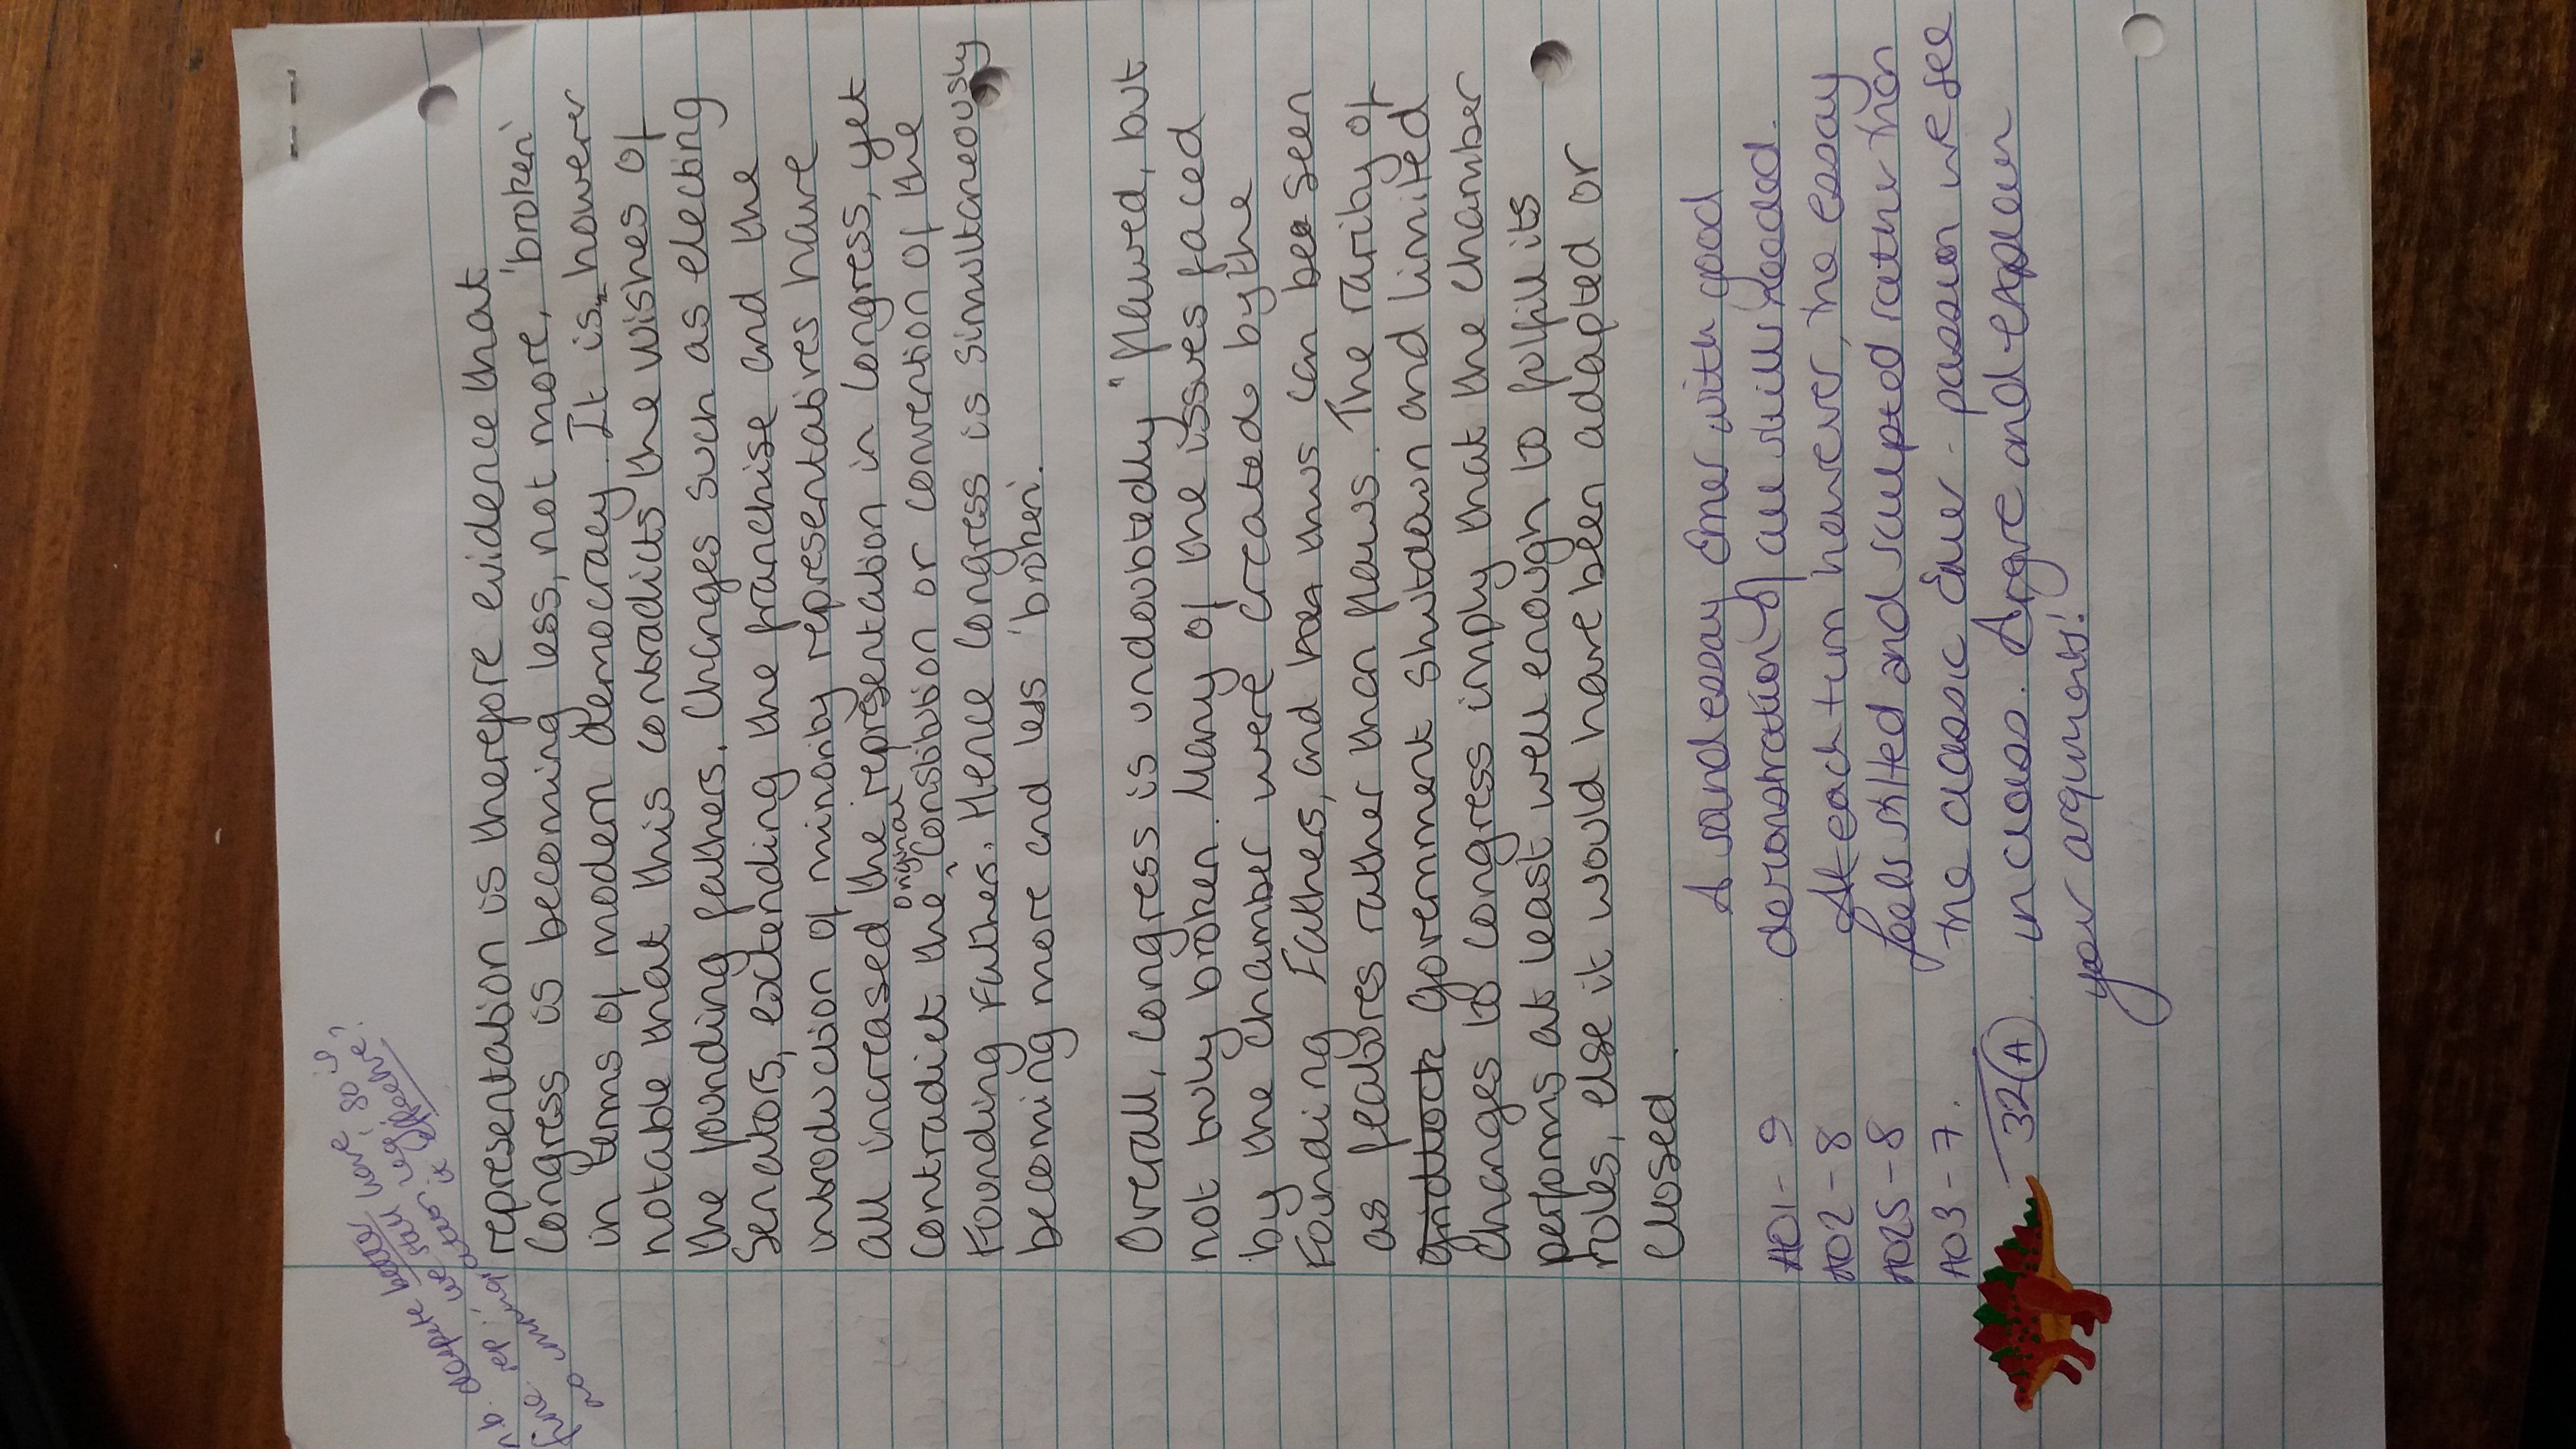 despite have 'so is
we still
no. of
five
no
representation is therefore evidence that
Congress is becoming less, not more, 'broken'
in terms of modern democracy. It is however
notable that this contradicts the wishes of
the founding fathers. Changes such as electing
Senators, extending the franchise and the
introduction of minority representatives have
all increased the representation in Congress, yet
original
contradict the Constitution or convention of the
Founding Fathers. Hence Congress is simultaneously
becoming more and less 'broken'.
Overall, Congress is undoubtedly "flawed, but
not truly broken. Many of the issues faced
by the chamber were created by the
Founding Fathers, and thus can be seen
as features rather than flaws. The rarity of
Gridlock Government Shutdown and limited
changes to Congress imply that the chamber
performs at least well enough to fulfill its
roles, else it would have been adapted or
closed.
A sound essay Emer with good
AO1 - 9 demonstration of all skills needed.
AO2 - 8 At each turn however, the essay
AO2S - 8 feels stilted and sculpted rather than
AO3 - 7. the classic Emer - passion we see
32 (A) in class. Argue and explain
your arguments!